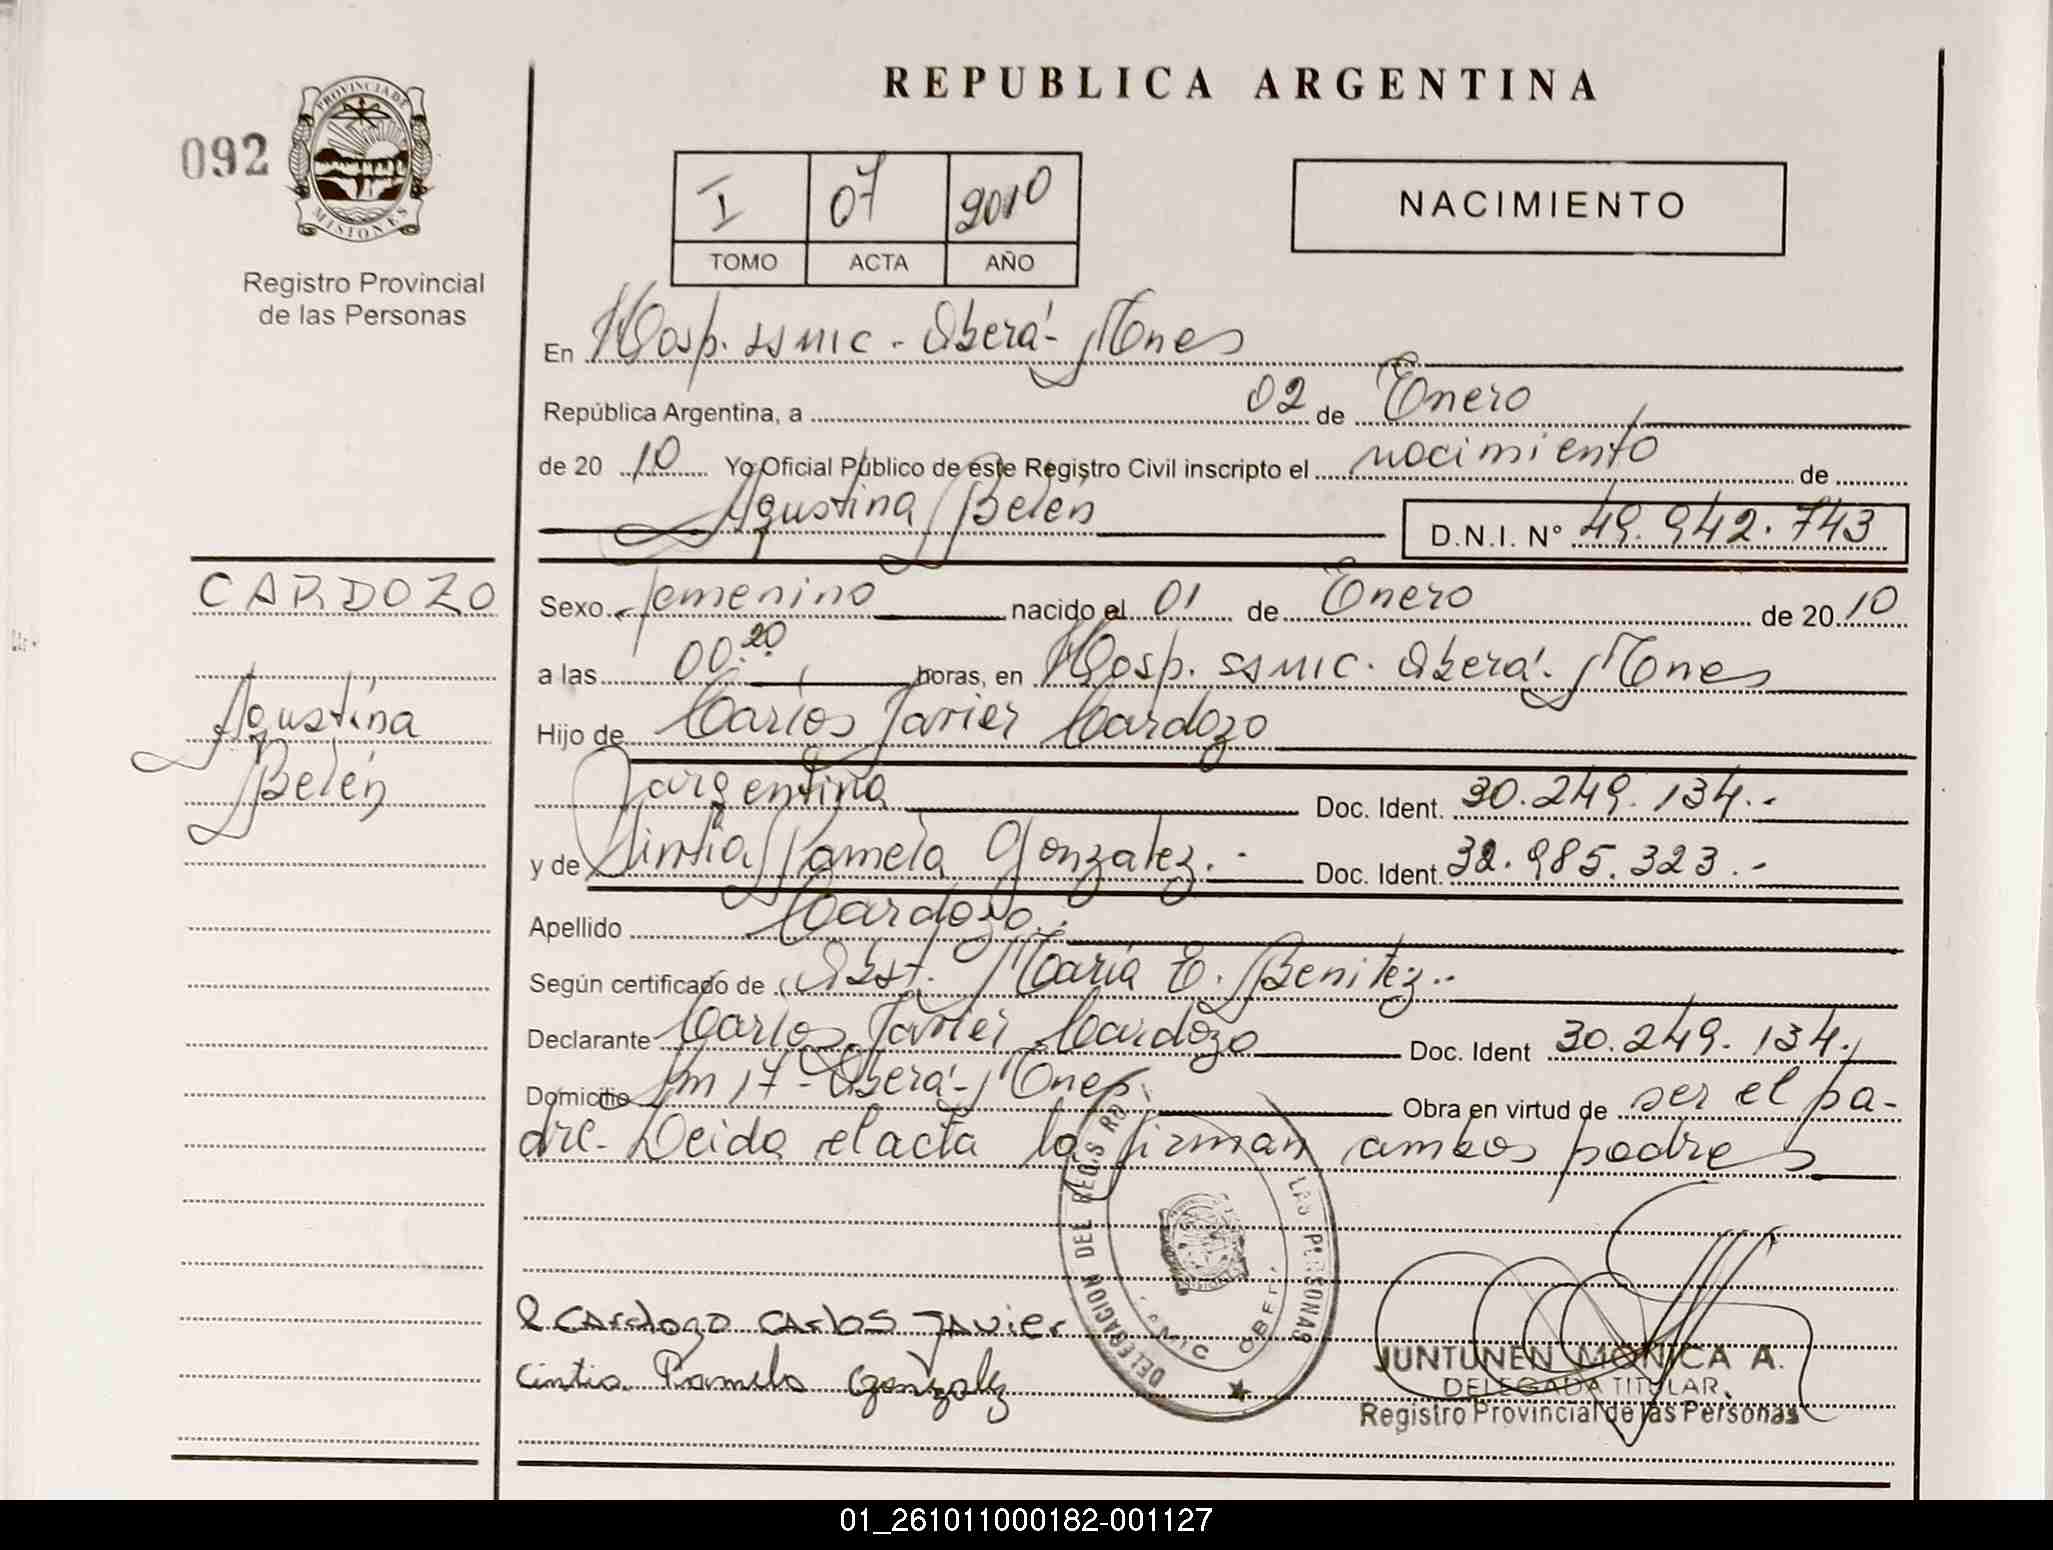 REPUBLICA ARGENTINA
092
PROVINCIA DE
MISIONES
Registro Provincial
de las Personas
I 07 2010
TOMO ACTA AÑO
NACIMIENTO
En Hosp. SSMIC - Oberá - Mnes
República Argentina, a 02 de Enero
de 20 10 Yo Oficial Público de este Registro Civil inscripto el nacimiento de
Agustina Belén D.N.I. Nº 49.942.743
CARDOZO
Agustina
Belén
Sexo femenino nacido el 01 de Enero de 20 10
a las 00:20 horas, en Hosp. SSMIC. Oberá. Mnes
Hijo de Carlos Javier Cardozo
argentina Doc. Ident. 30.249.134.-
y de Sintia Pamela Gonzalez.- Doc. Ident. 32.985.323.-
Apellido Cardozo.
Según certificado de Obst. María E. Benitez.-
Declarante Carlos Javier Cardozo Doc. Ident 30.249.134.
Domicilio Km 17 - Oberá - Mnes. Obra en virtud de ser el pa-
dre. Leida el acta la firman ambos padres
DELEGACION DEL REG. LAS PERSONAS
OBERA
CARdozo CARlos JAVier
Cintia Pamela Gonzalez
JUNTUNEN MONICA A.
DELEGADA TITULAR
Registro Provincial de las Personas
01_261011000182-001127